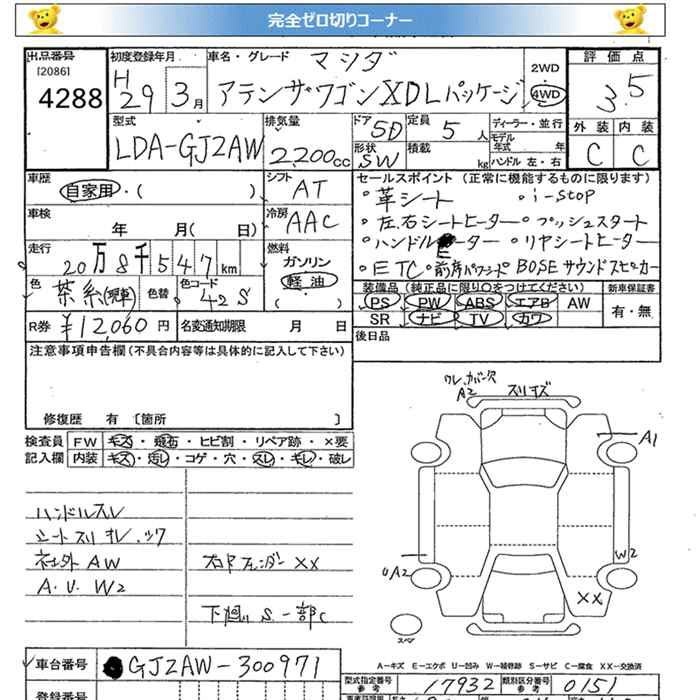 完全ゼロ切りコーナー
出品番号 初度登録年月 車名・グレード マツダ 2WD 評価点
[2086] 4288
H29年3月 アテンザワゴンXDLパッケージ 4WD 3.5
型式 排気量 ドア 5D 定員 5人 ディーラー・並行 外装 内装
LDA-GJ2AW 2,200cc 形状 SW 積載 kg モデル年式 年 ハンドル 左・右 C C
車歴 シフト セールスポイント (正常に機能するものに限ります)
自家用・( ) AT ・革シート ・i-stop
車検 冷房 ・左右シートヒーター ・プッシュスタート
年 月( 日) AAC ・ハンドルヒーター ・リヤシートヒーター
走行 燃料 ・ETC ・前席パワーシート BOSEサウンドスピーカー
20万8千547km ガソリン
色 色替 色コード 軽油 装備品 (純正品に限り○をつけてください) 新車保証書
茶系 42S PS PW ABS エアB AW 有・無
R券 ¥12,060円 名変通知期限 月 日 SR ナビ TV カワ
注意事項申告欄(不具合内容等は具体的に記入して下さい) 後日品
修復歴 有 〔箇所 〕
検査員 FW キズ・飛石・ヒビ割・リペア跡・×要
記入欄 内装 キズ・汚レ・コゲ・穴・スレ・キレ・破レ
A2 スリキズ
A1
ハンドルスレ
シートスリ
社外AW 右リヤフェンダーXX W2
A.U. W2 UA2
XX
下廻りS. 一部C スペア
A-キズ E-エクボ U-凹み W-補修跡 S-サビ C-腐食 XX-交換済
車台番号 GJ2AW-300971 型式指定番号 参考 17932 類別区分番号 参考 0151
登録番号